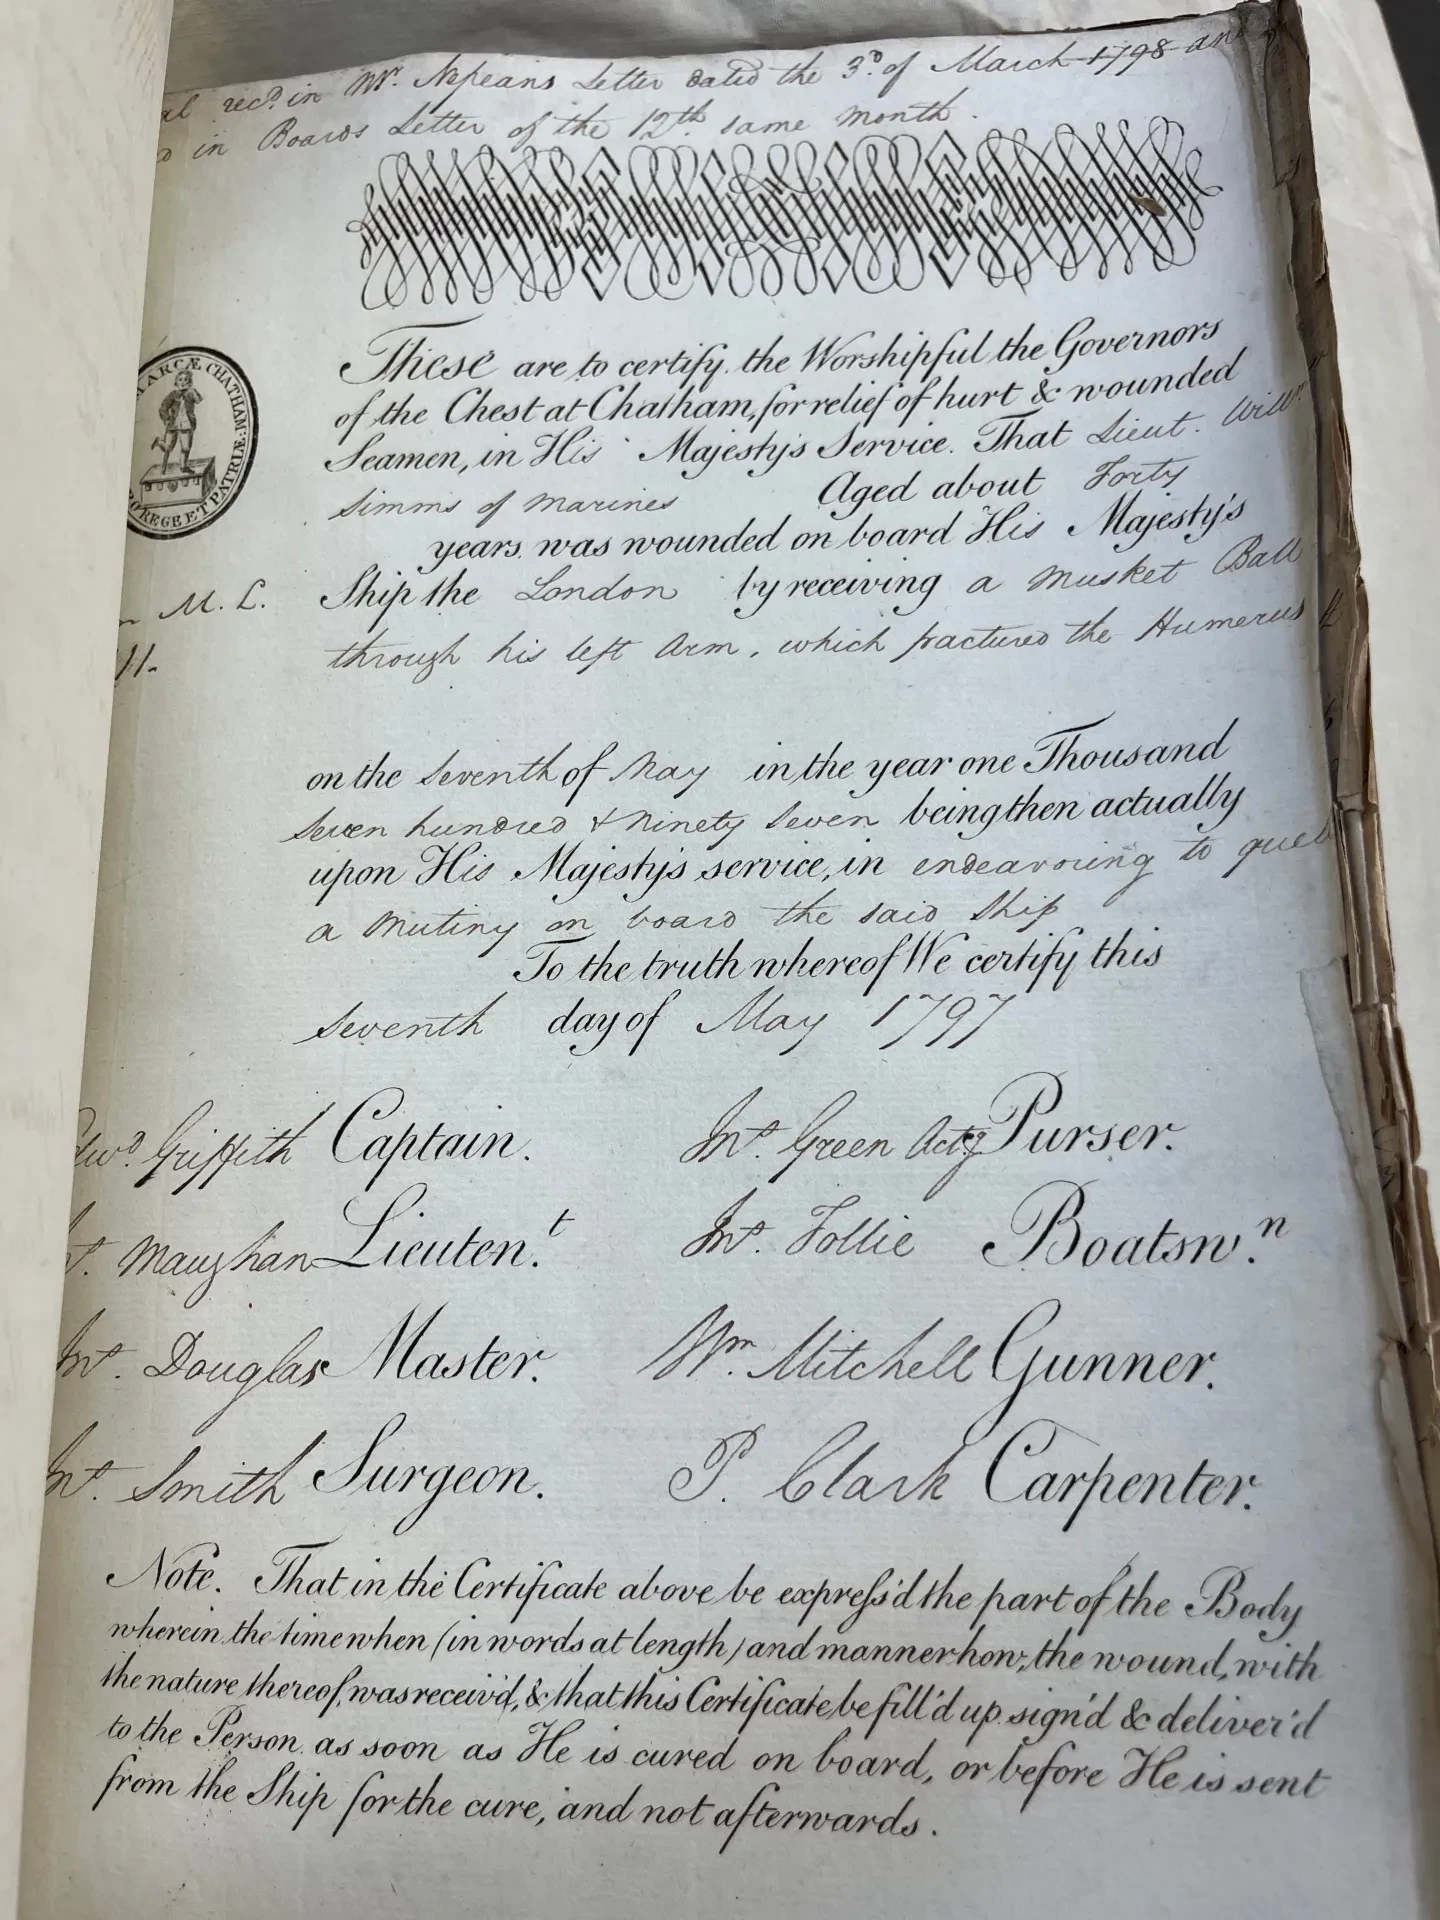 al rec.d in Mr. Nepeans Letter dated the 3.d of March 1798 and
d in Boards Letter of the 12th same month.
ARCÆ CHATHAM: PRO REGE ET PATRIÆ
These are to certify the Worshipful the Governors
of the Chest at Chatham, for relief of hurt & wounded
Seamen, in His Majesty's Service. That Lieut. Willm.
Simms of Marines Aged about Forty
years was wounded on board His Majesty's
M. L. Ship the London by receiving a Musket Ball
11. through his left Arm, which fractured the Humerus
on the Seventh of May in the year one Thousand
Seven hundred & Ninety Seven being then actually
upon His Majesty's service, in endeavoring to quel
a Mutiny on board the said Ship
To the truth whereof We certify this
Seventh day of May 1797
Edwd. Griffith Captain. Jno. Green Actg Purser.
Maughan Lieuten.t Jno. Follie Boatsw.n
Jno. Douglas Master. Wm. Mitchell Gunner.
Jno. Smith Surgeon. P. Clark Carpenter.
Note. That in the Certificate above be expreſs'd the part of the Body
wherein, the time when (in words at length) and manner how, the wound, with
the nature thereof, was receiv'd, & that this Certificate be fill'd up sign'd & deliver'd
to the Person as soon as He is cured on board, or before He is sent
from the Ship for the cure, and not afterwards.